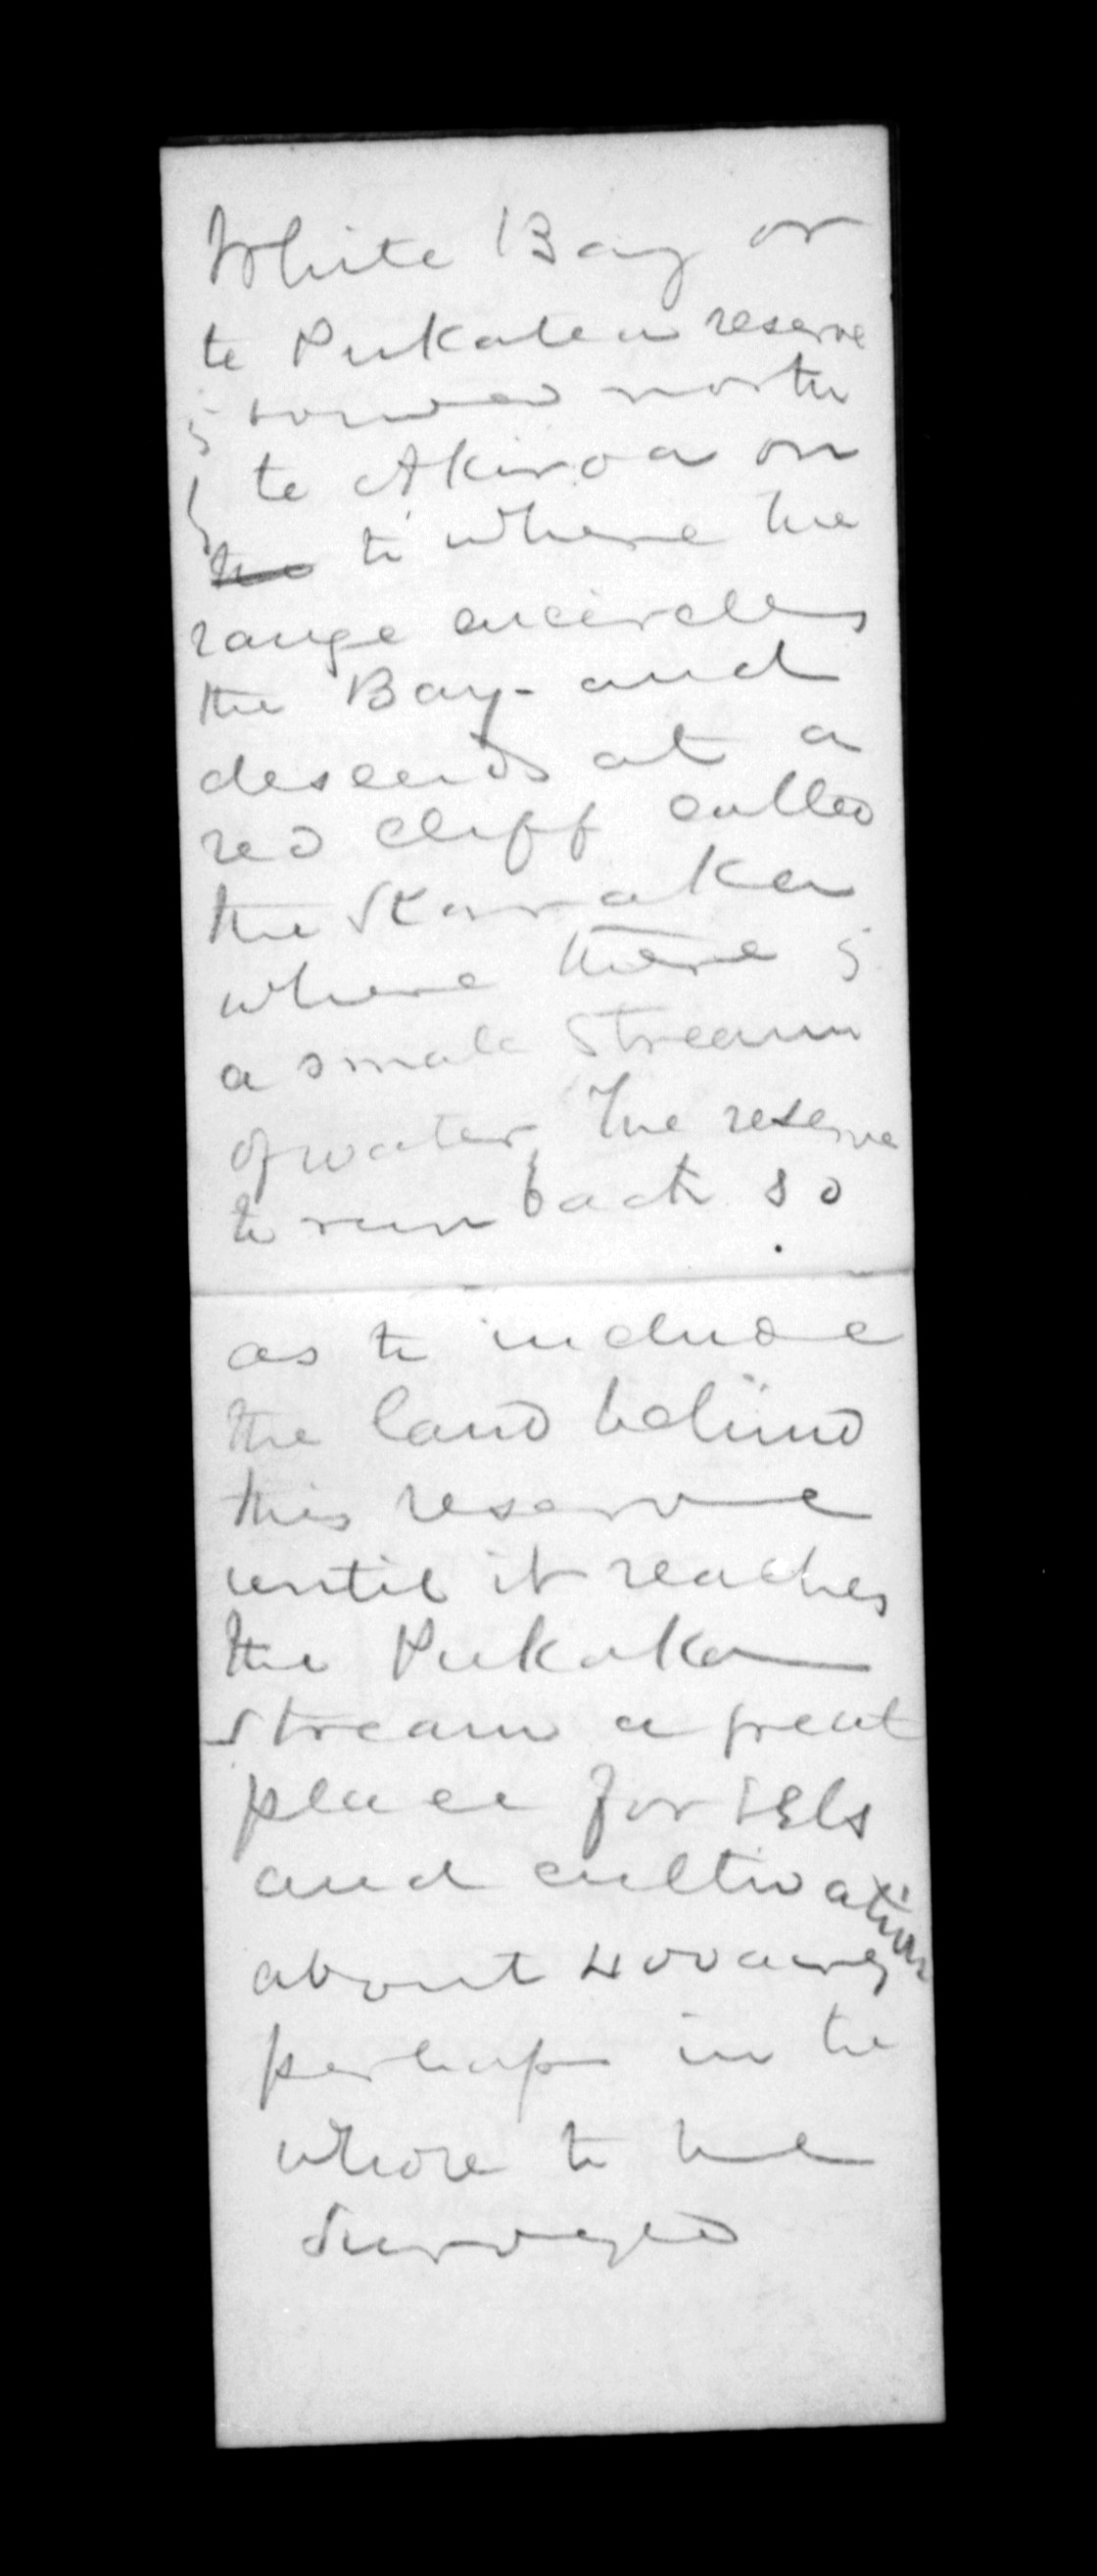 White Bay or
te Pukatea reserve
bounded north
te Akiroa on
to where the
range encircles
the Bay - and
descends at a
red cliff called
the Karaka
where there is
a small stream
of water The reserve
to run back so
as to include
the land behind
this reserve
until it reaches
the Pukaka
stream a great
place for Eels
and cultivation
about 400 acres
perhaps in the
whole to be
Surveyed